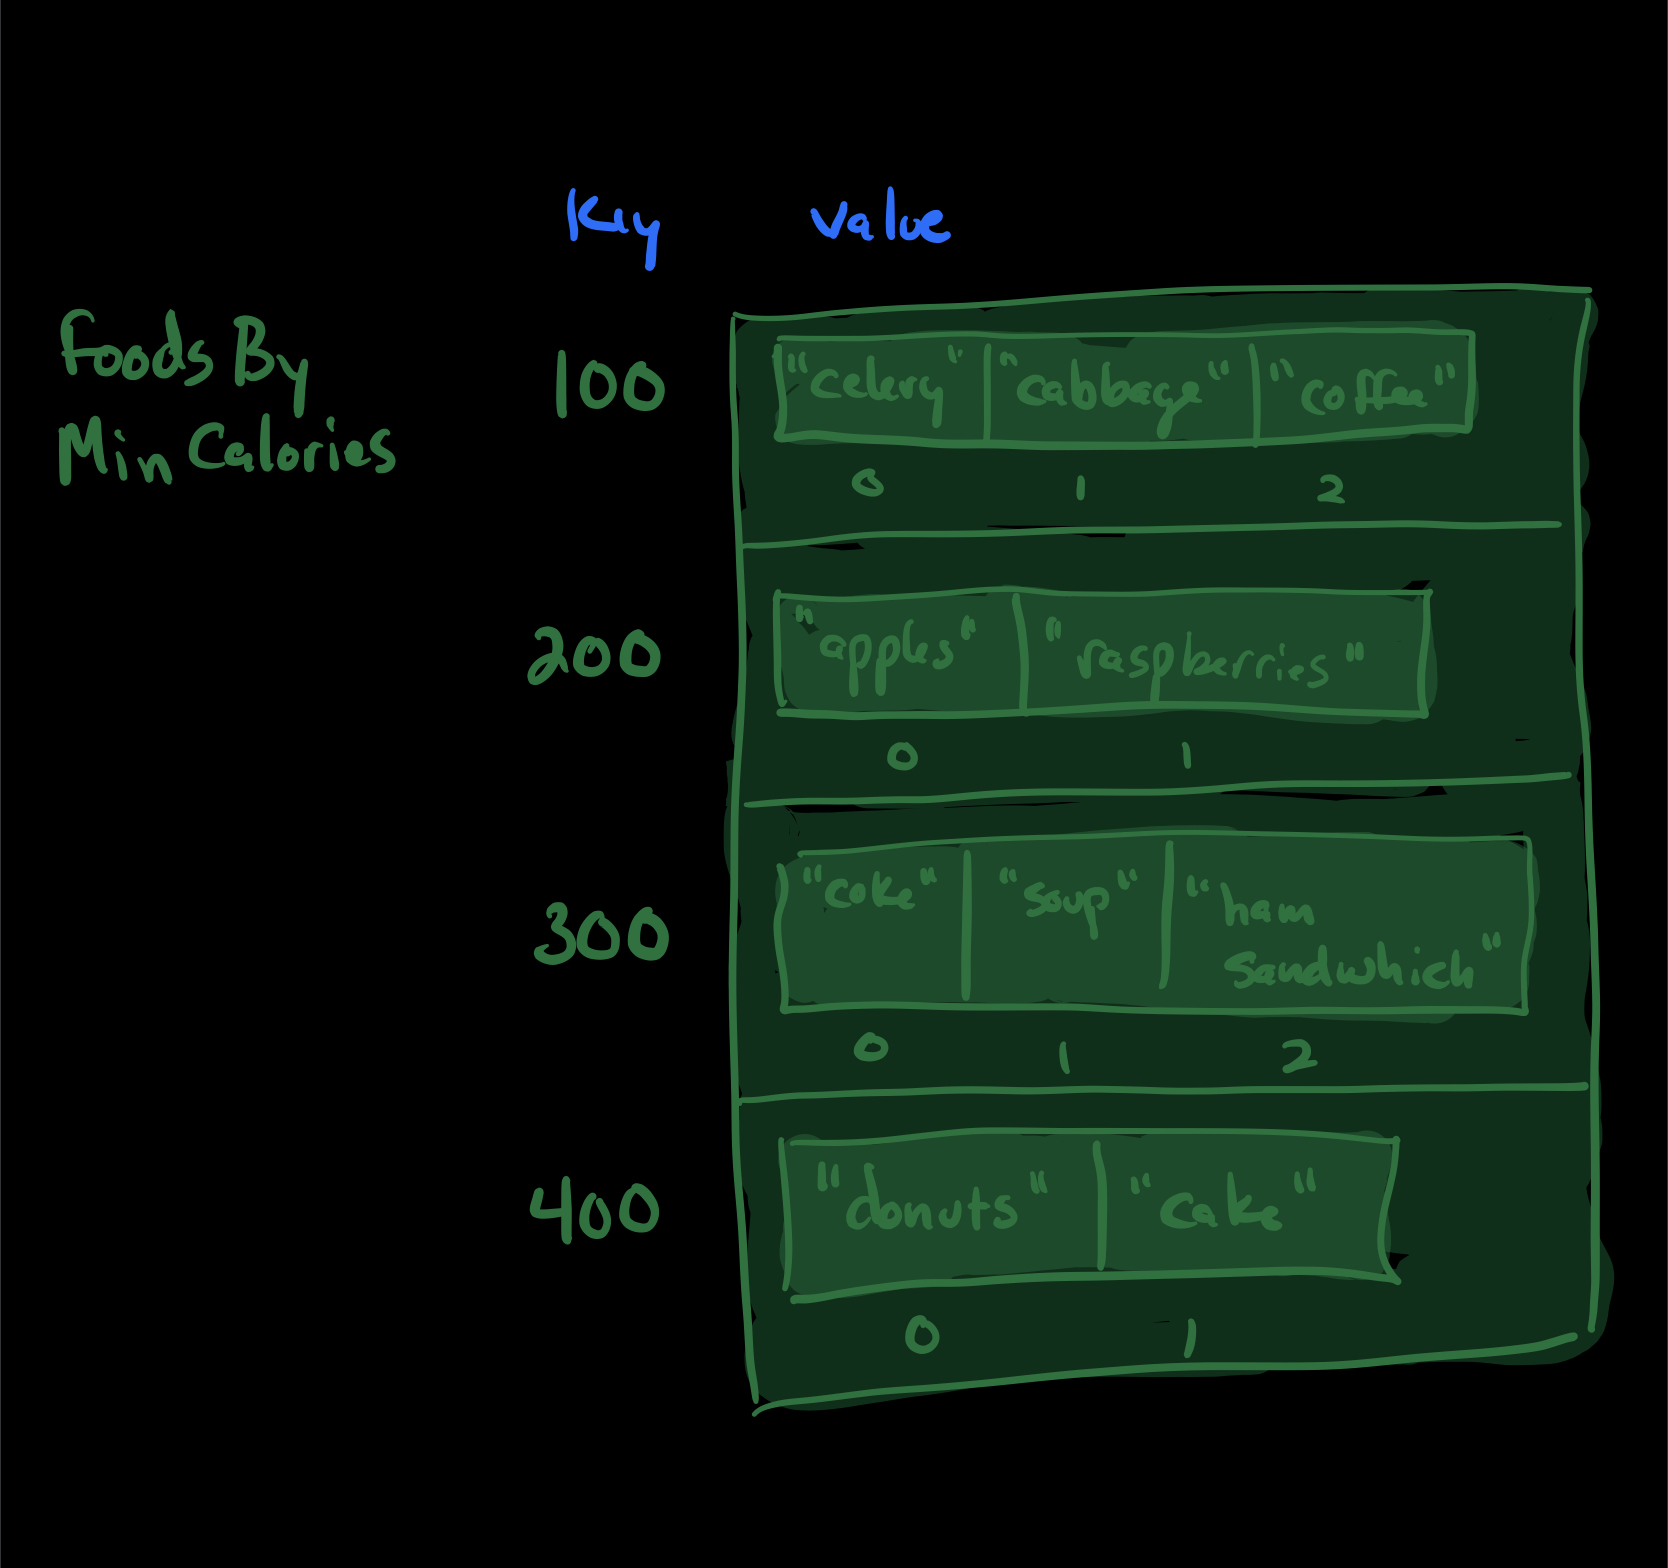 Key value
Foods By
Min Calories
100 "celery" "cabbage" "coffee"
0 1 2
200 "apples" "raspberries"
0 1
300 "coke" "soup" "ham
sandwhich"
0 1 2
400 "donuts" "cake"
0 1